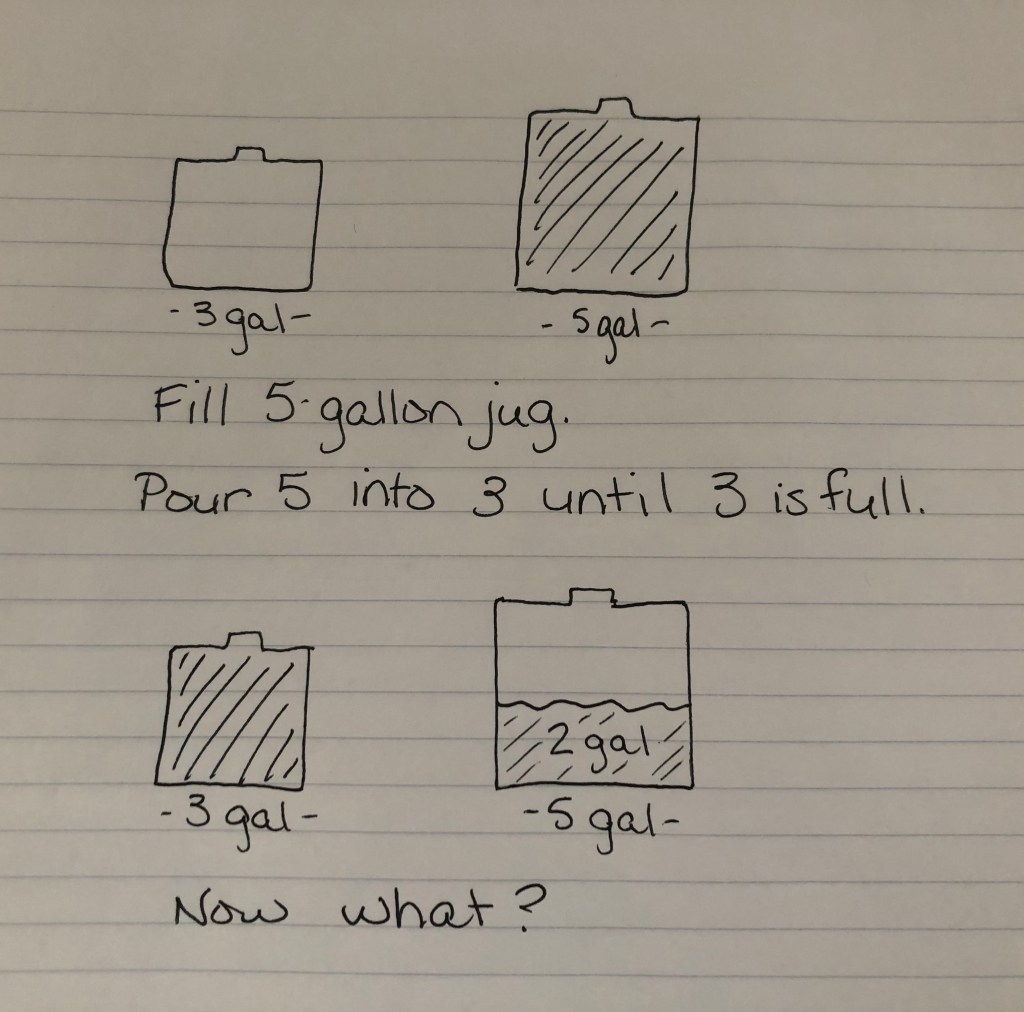 -3 gal-
-5 gal-
Fill 5-gallon jug.
Pour 5 into 3 until 3 is full.
2 gal
-3 gal-
-5 gal-
Now what?